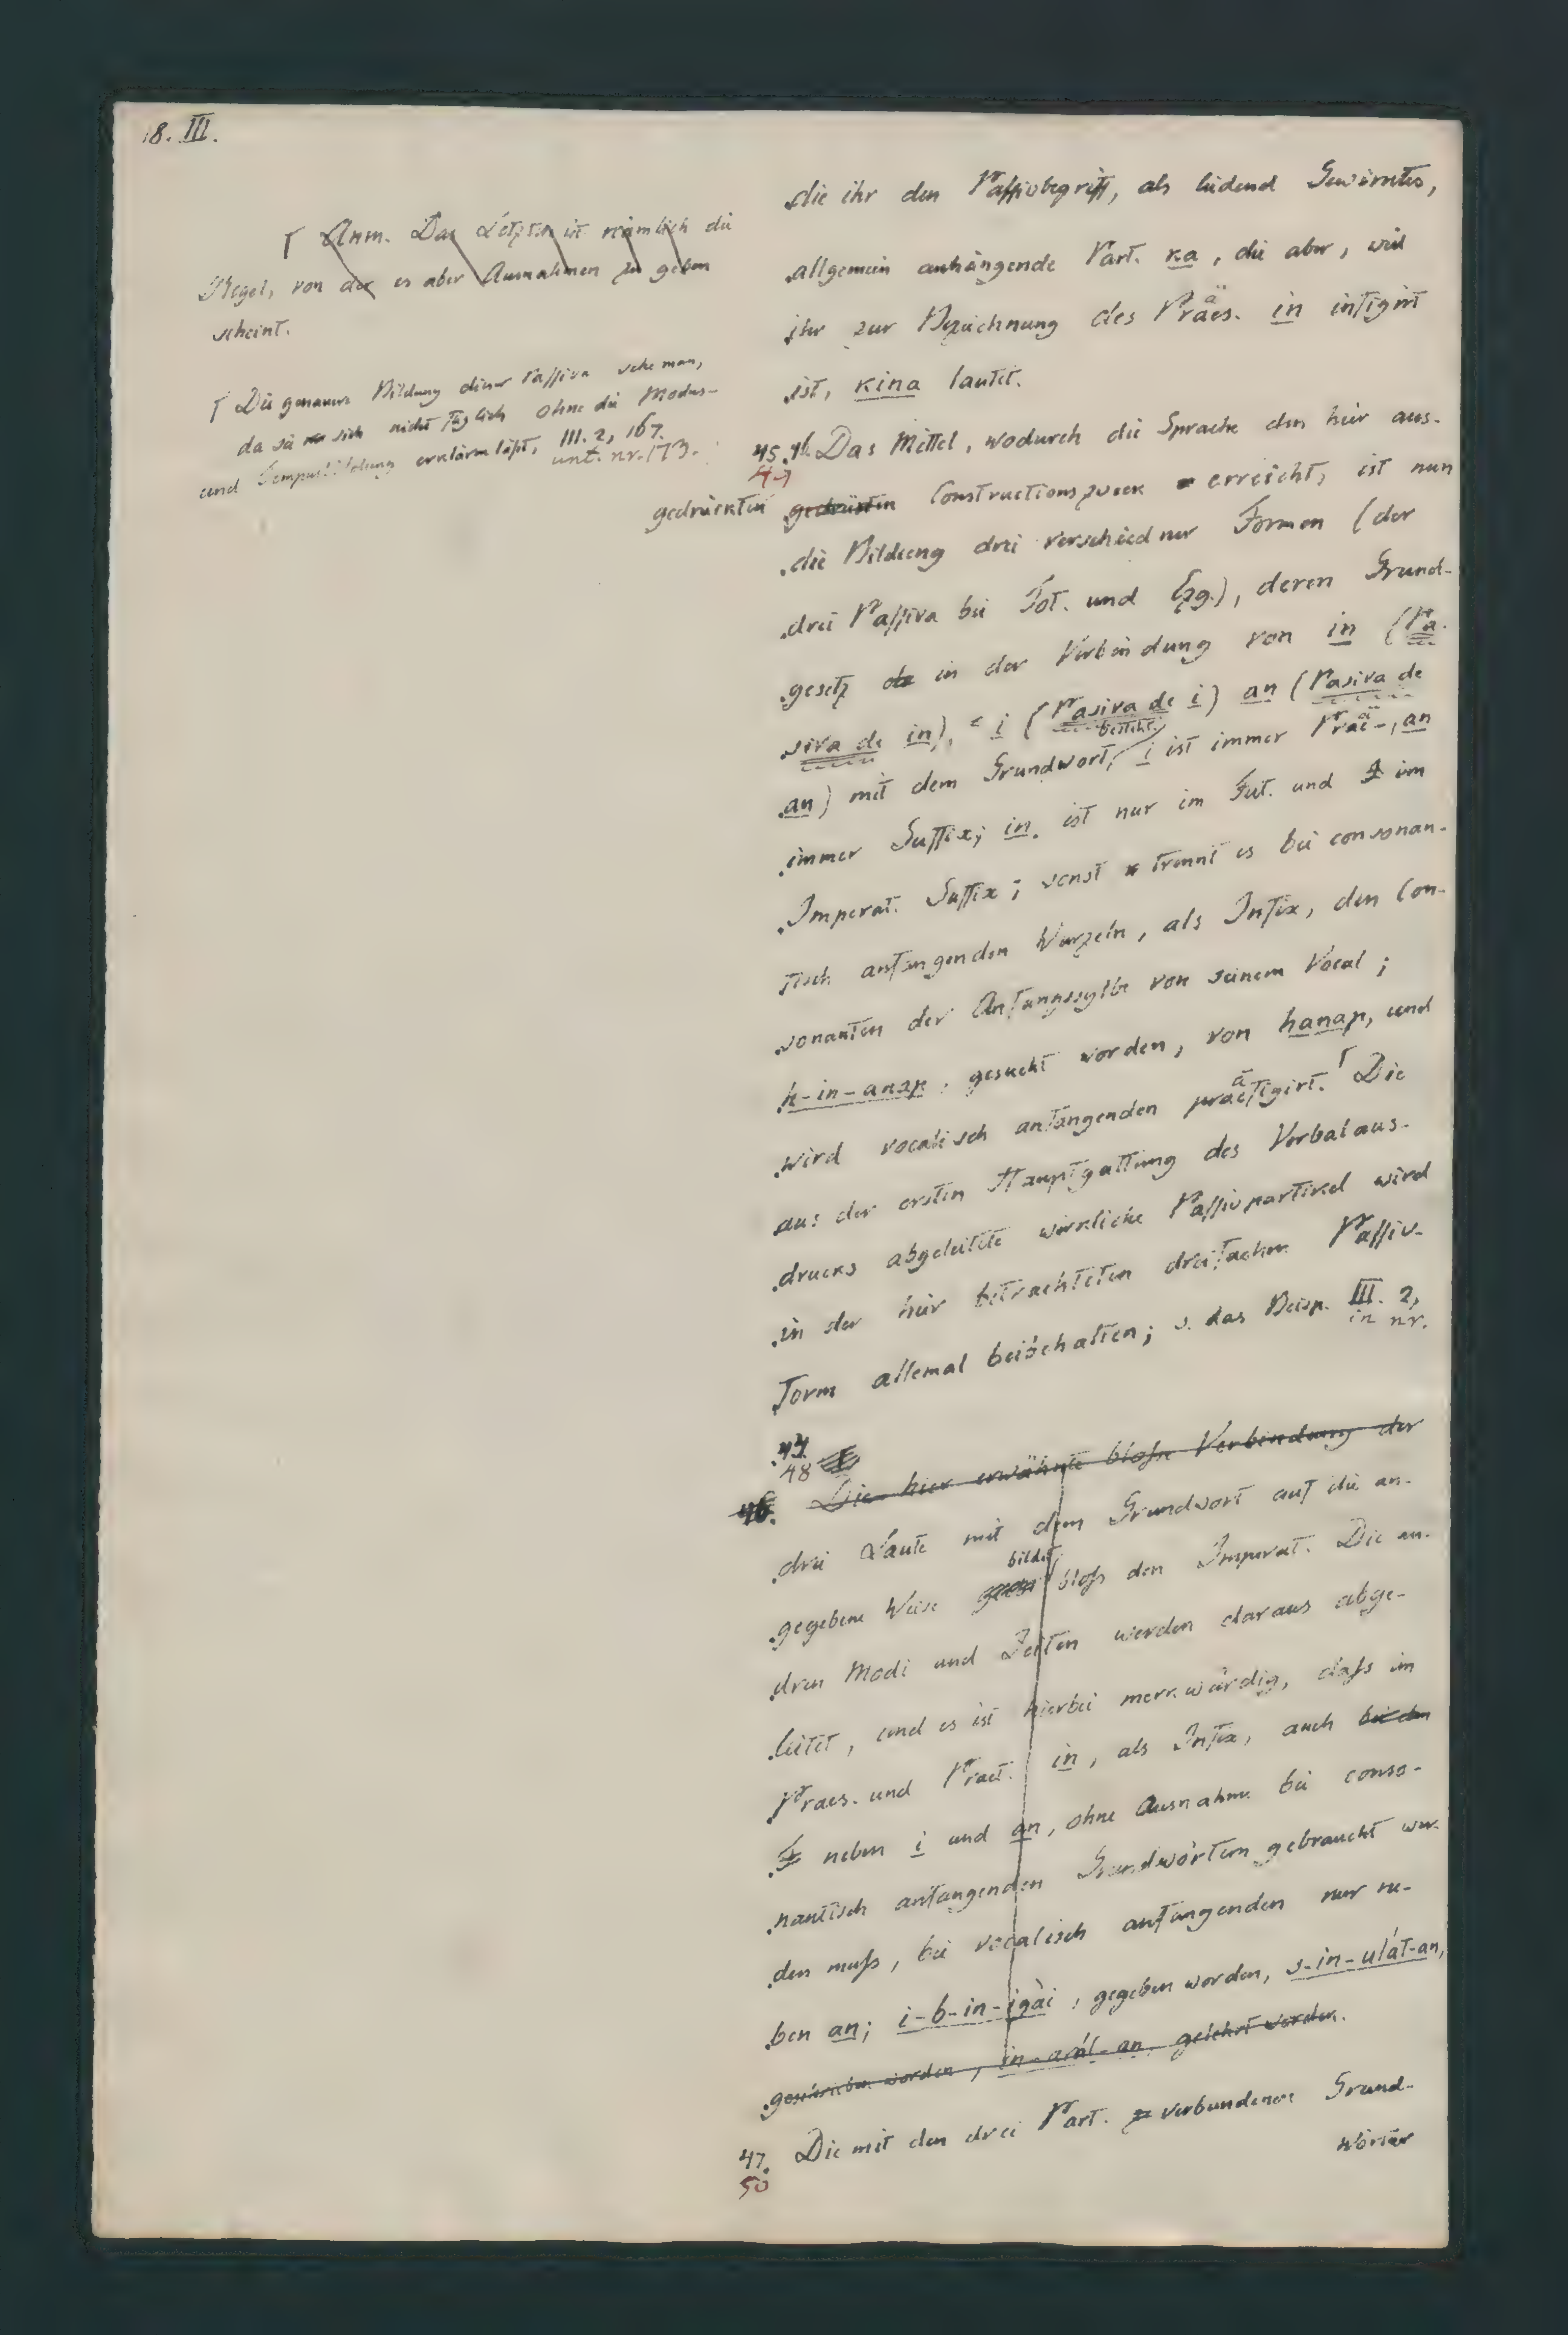 18. III.
Γ Anm. Das Letzte ist nämlich die
Regel, von der es aber Ausnahmen zu geben
scheint.
Γ Die genauere Bildung dieser Passiva sehe man,
da sie sich nicht füglich ohne die Modus-
und Tempusbildung erklären läßt, III. 2, 167.
unt. nr. 173.
die ihr den Passivbegriff, als leidend Gewirktes,
allgemein anhängende Part. ka, die aber, weil
ihr zur Bezeichnung des Praes. in infigirt
ist, kina lautet.
45. 46. Das Mittel, wodurch die Sprache den hier aus-
47
gedrückten gedrückten Constructionszweck erreicht, ist nun
die Bildung drei verschiedner Formen (der
drei Passiva bei Tot. und Ezg.), deren Grund-
gesetz in der Verbindung von in (Pa-
siva de in), i (Pasiva de i) an (Pasiva de
an) mit dem Grundwort, besteht. i ist immer Prae-, an
immer Suffix; in ist nur im Fut. und im
Imperat. Suffix; sonst trennt es bei consonan-
tisch anfangenden Wurzeln, als Infix, den Con-
sonanten der Anfangssylbe von seinem Vocal;
h-in-anap, gesucht worden, von hanap, und
wird vocalisch anfangenden praefigirt. Γ Die
aus der ersten Hauptgattung des Verbalaus-
drucks abgeleitete wirkliche Passivpartikel wird
in der hier betrachteten dreifachen Passiv-
form allemal beibehalten; s. das Beisp. III. 2,
in nr.
47
48
46. Die hier erwähnte bloße Verbindung der
drei Laute mit dem Grundwort auf die an-
gegebene Weise bildet bloß den Imperat. Die an-
dren Modi und Zeiten werden daraus abge-
leitet, und es ist hierbei merkwürdig, daß im
Praes. und Praet. in, als Infix, auch bei den
neben i und an, ohne Ausnahme bei conso-
nantisch anfangenden Grundwörtern gebraucht wer-
den muß, bei vocalisch anfangenden nur ne-
ben an; i-b-in-igài, gegeben worden, s-in-ulát-an,
geschrieben worden, in-arál-an, gelehrt worden.
47. Die mit den drei Part. verbundenen Grund-
50
wörter